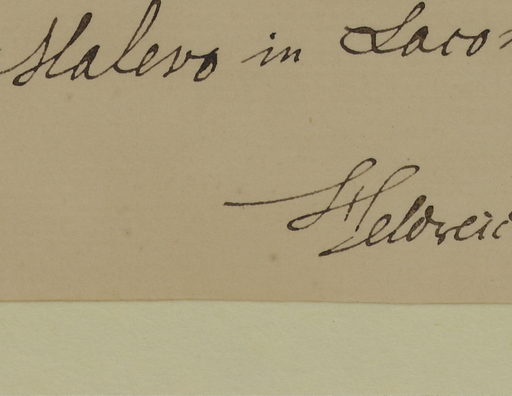 Malevo in Laco
Heldreic